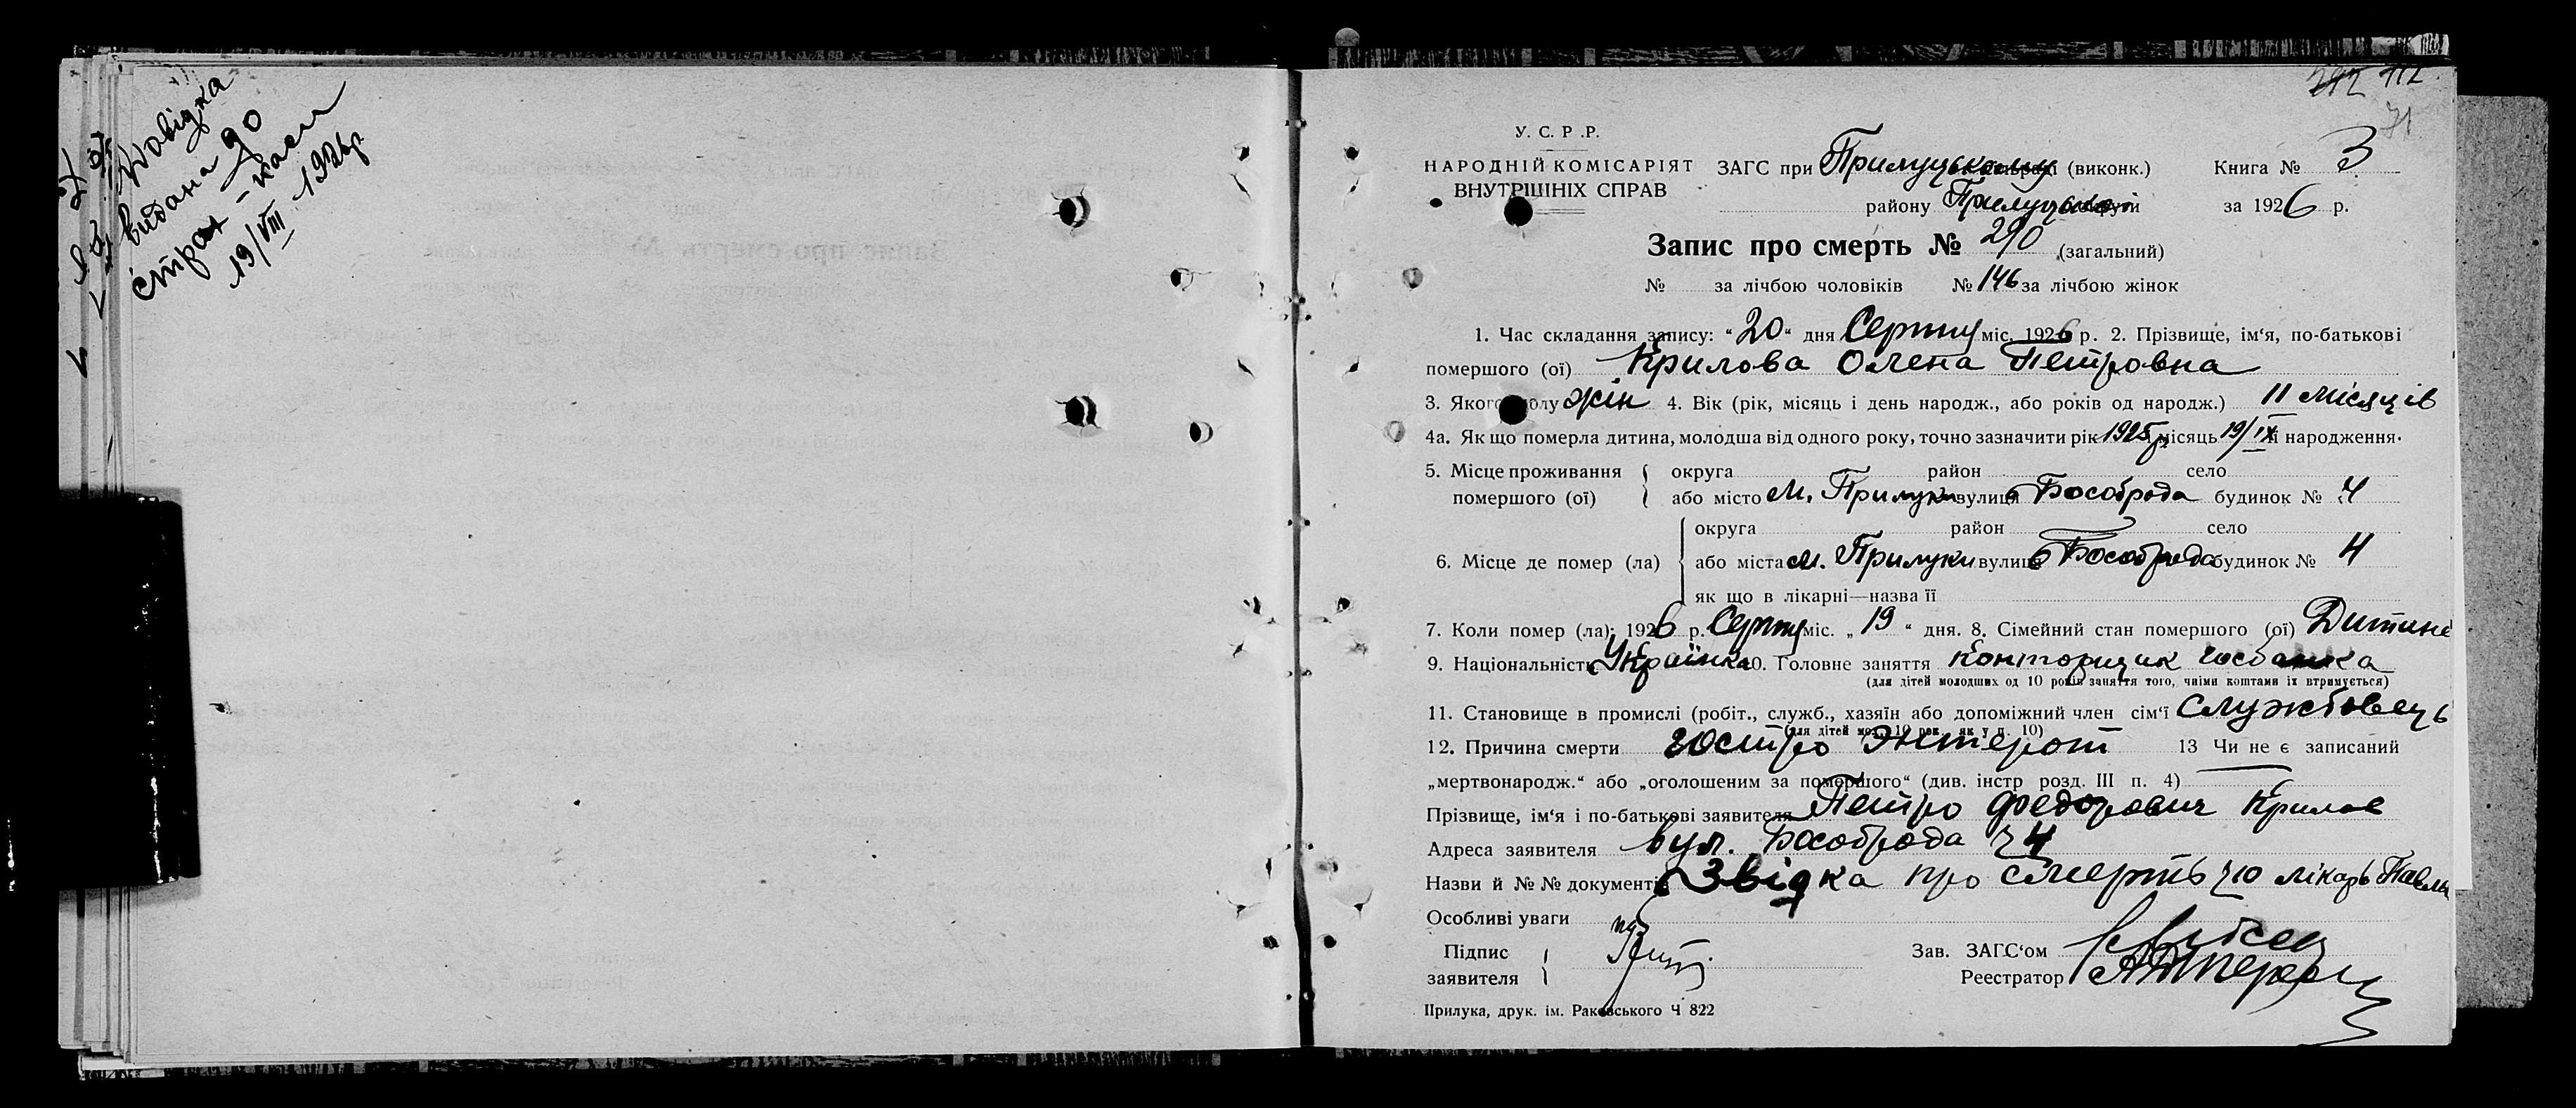 Довідка
видана до
страх-каси
19/VIII 1926р
71
У. С. Р. Р.
НАРОДНІЙ КОМІСАРІЯТ
ВНУТРІШНІХ СПРАВ
ЗАГС при Прилуцькому (виконк.)
району Прилуцької округи
Книга № 3
за 1926 р.
Запис про смерть № 290 (загальний)
№ за лічбою чоловіків № 146 за лічбою жінок
1. Час складання запису: "20" дня Серпня міс. 1926 р. 2. Прізвище, ім'я, по-батькові
помершого (ої) Крилова Олена Петровна
3. Якого полу жін 4. Вік (рік, місяць і день народж., або років од народж.) 11 місяців
4а. Як що померла дитина, молодша від одного року, точно зазначити рік 1925р місяць 19/IX її народження.
5. Місце проживання округа район село
помершого (ої) або місто м. Прилуки вулиця Бособрода будинок № 4
округа район село
6. Місце де помер (ла) або міста м. Прилуки вулиця Бособрода будинок № 4
як що в лікарні—назва її
7. Коли помер (ла): 1926 р. Серпня міс. „19" дня. 8. Сімейний стан помершого (ої) Дитина
9. Національність Українка 10. Головне заняття конторщик Госбанка
(для дітей молодших од 10 років заняття того, чиїми коштами їх втримується)
11. Становище в промислі (робіт., служб., хазяїн або допоміжний член сім'ї Службовець
(для дітей мол. 10 рок. як у п. 10)
12. Причина смерти гостро Энтерот 13 Чи не є записаний
„мертвонародж." або „оголошеним за помершого" (див. інстр розд. III п. 4)
Прізвище, ім'я і по-батькові заявителя Петро Федорович Крилов
Адреса заявителя вул. Бособрода Ч 4
Назви й №№ документів Звідка про смерть Ч 10 лікарь
Особливі уваги
Підпис
заявителя
Зав. ЗАГС'ом
Реестратор
Прилука, друк. ім. Раковського Ч 822